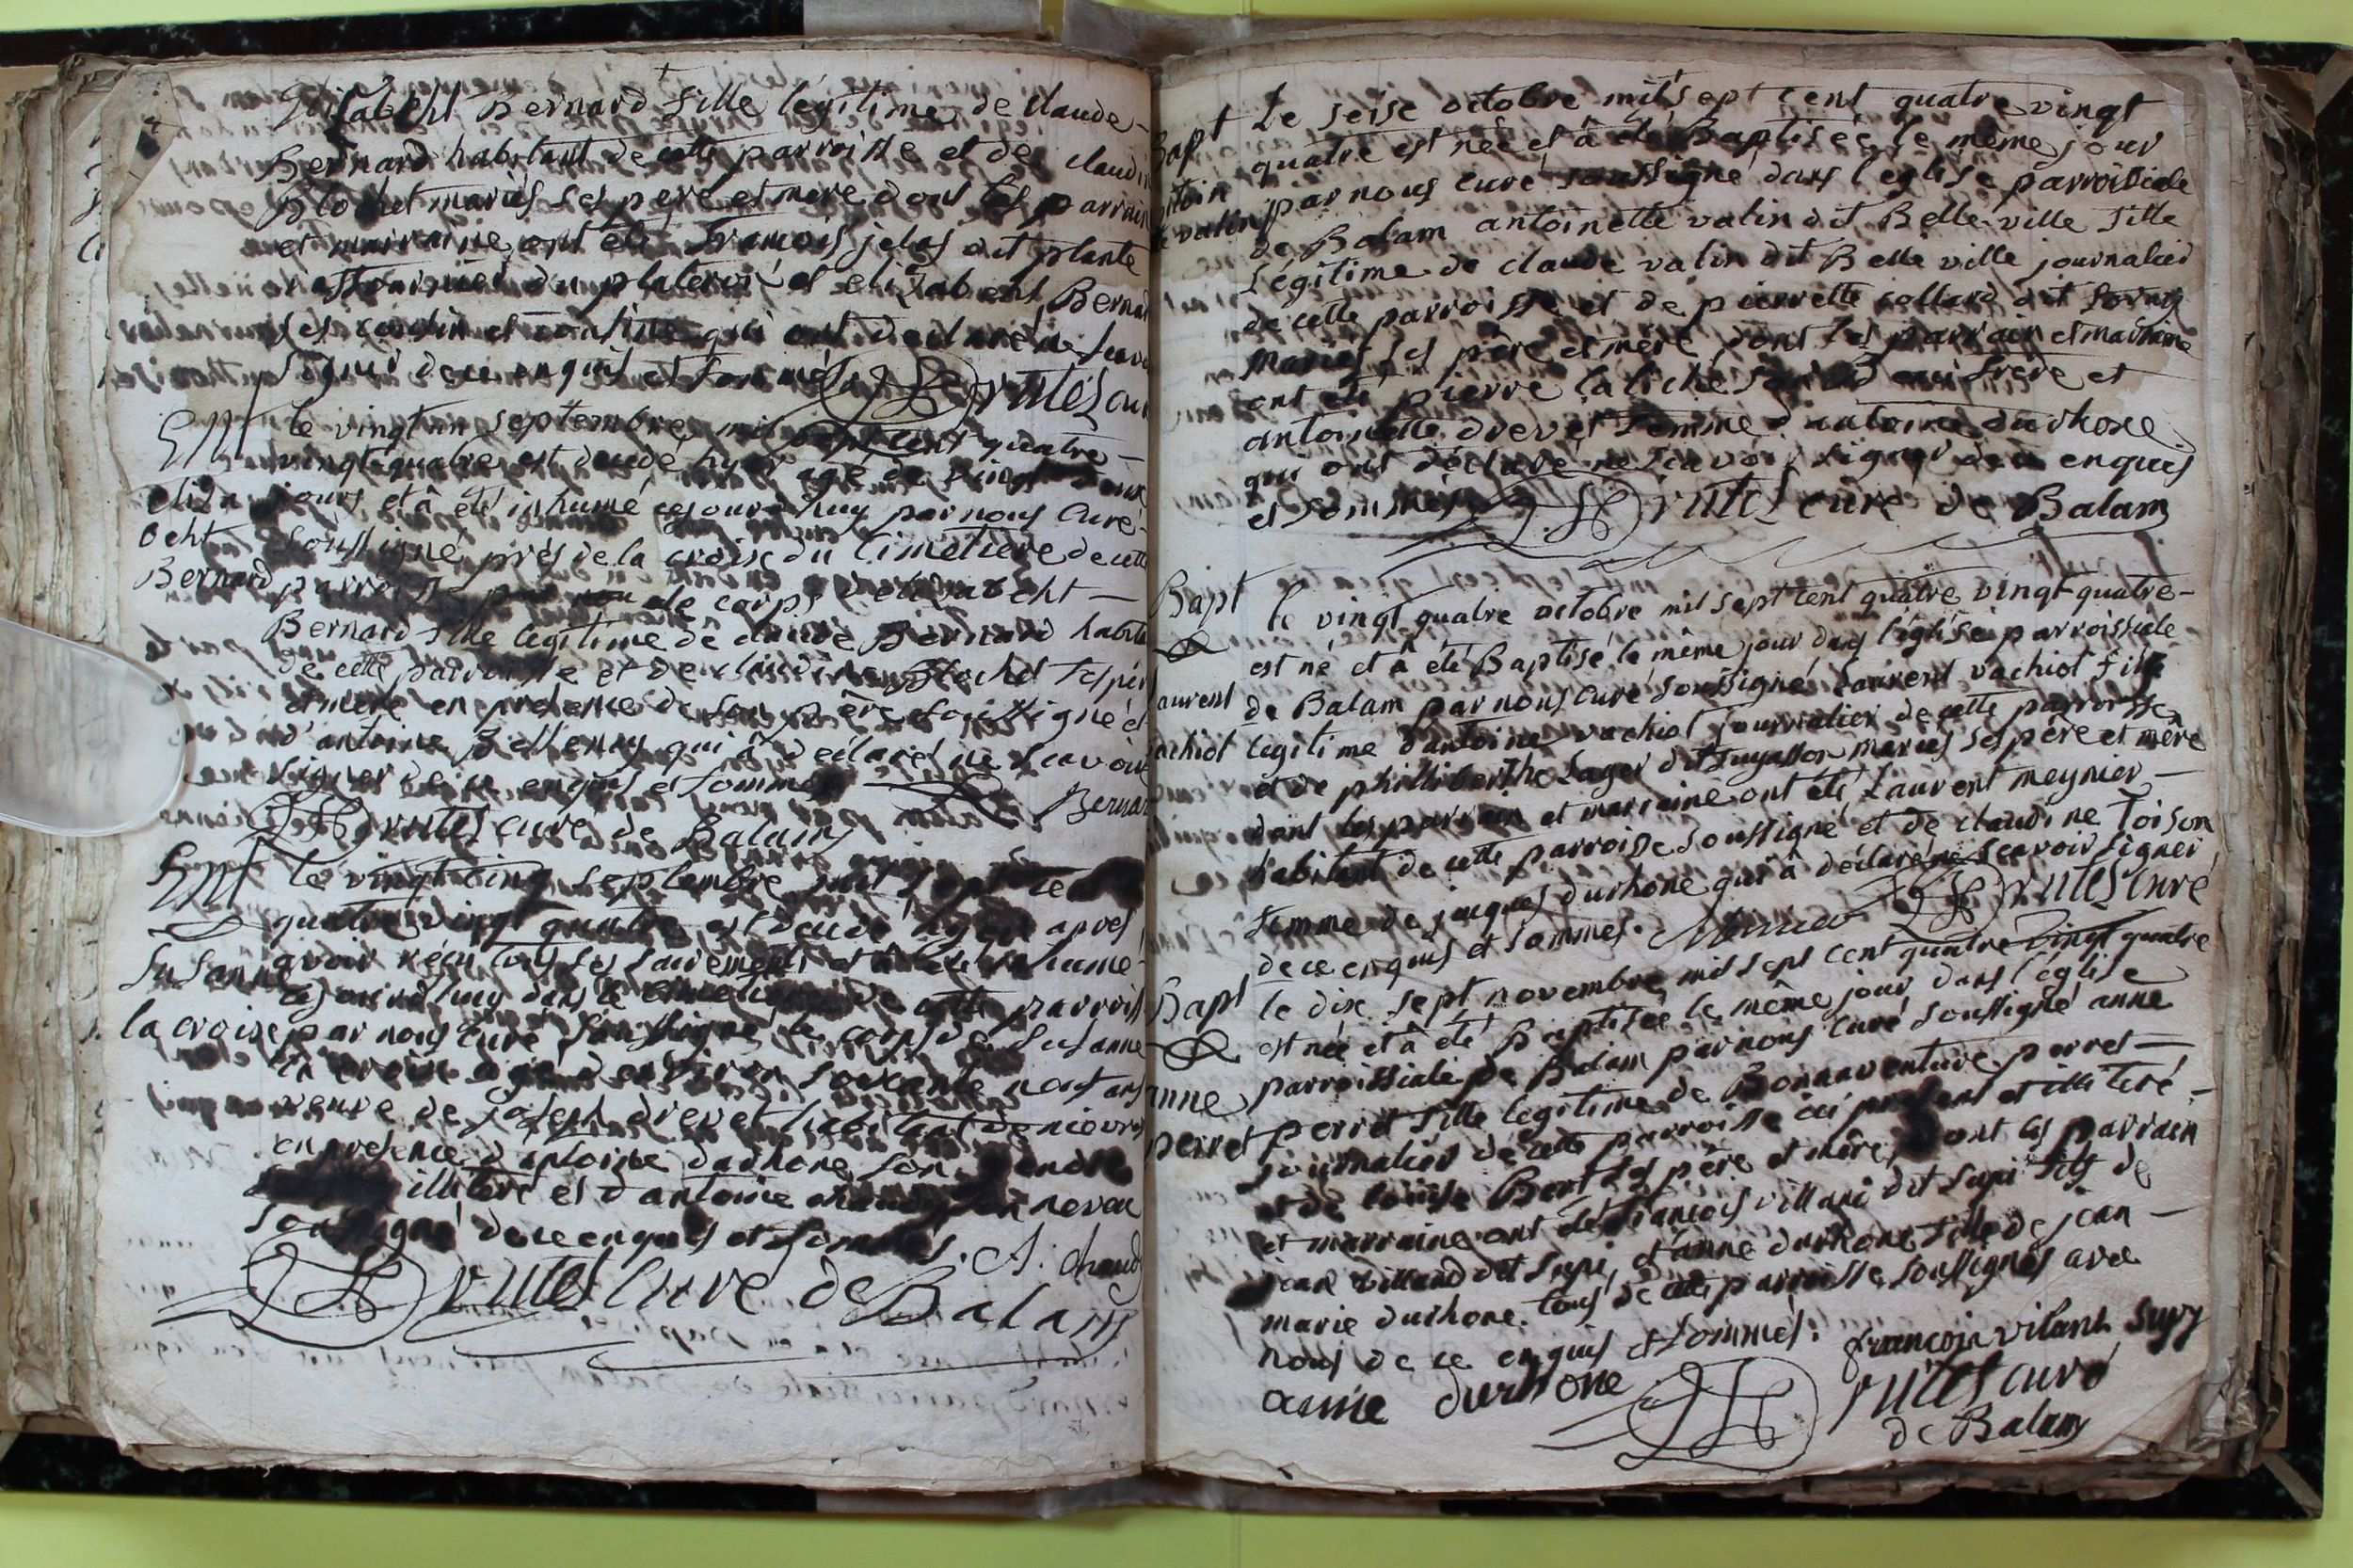 Elisabeht Bernard fille légitime de claude
Bernard habitant de cette parroisse et de claudine
Blochet mariés ses pere et mere dont les parrain
et marraine ont été francois jelas dit plante
du platerou et elizabeht Bernard
ses cousin et cousine qui ont déclaré ne scavoir
signer de ce enquis et sommés Drutes curé
Ent
elisa
beht
Bernard
le vingt un septembre mil sept cent quatre
vingt quatre est decedé hyer agé de vingt deux
jours et à été inhumé ce jourd'huy par nous curé
soussigné près de la croix du cimetiere de cette
parroisse le corps d'elizabeht
Bernard fille legitime de claude Bernard habitant
de cette parroisse et de claudine Blochet ses père
et mère en presence de son père soussigné et
d'antoine qui à déclaré ne scavoir
signer de ce enquis et sommé Bernard
Drutes curé de Balam
Ent
Susanne
la croix
le vingt cinq septembre mil sept cent
quatre vingt quatre est decedé après
avoir reçu tous ses sacrements et à été inhumé
ce jourd'huy dans le cimetiere de cette parroisse
par nous curé soussigné le corps de Susanne
la croix agée d'environ soixante neuf ans
veuve de joseph drevet habitant de nievroz
en presence d'antoine durhone son gendre
illiteré et d'antoine neveu
soussigné de ce enquis et sommés. A. chanel
Drutes curé de Balam
Bapt
antoin
te vatin
Le seise octobre mil sept cent quatre vingt
quatre est née et à été Baptisée le même jour
par nous curé soussigné dans l'eglise parroissiale
de Balam antoinette vatin dit Belle ville fille
Légitime de claude vatin dit Belle ville journalier
de cette parroisse et de pierrette collard dit forny
mariés ses père et mère, dont les parrain et marraine
ont été pierre frère et
antoinette drevet femme d'antoine durhone
qui ont déclaré ne scavoir signer de ce enquis
et sommés Drutes curé de Balam
Bapt
Laurent
vachiot
le vingt quatre octobre mil sept cent quatre vingt-quatre
est né et à été Baptisé le même jour dans l'église parroissiale
de Balam par nous curé soussigné Laurent vachiot fils
legitime d'antoine vachiot journalier de cette parroisse
et de philliberthe Lager dit mariés ses père et mère
dont les parrain et marraine ont été Laurent meynier
habitant de cette parroise soussigné et de claudine Toison
femme de jacques durhone qui à déclaré ne scavoir signer
de ce enquis et sommés. Drutes curé
Bapt
anne
perret
le dix sept novembre mil sept cent quatre vingt quatre
est née et à été Baptisée le même jour dans l'église
parroissiale de Balam par nous curé soussigné anne
perret fille legitime de Bonnaventure perret
journalier de cette parroisse ici present et illiteré
et de louise Bert ses père et mère, dont les parrain
et marraine ont été francois villard dit supi fils de
jean villard dit supi, et anne durhone fille de jean
marie durhone. tous de cette parroisse soussignés avec
nous de ce enquis et sommés: francois vilard Supy
anne durhone Drutes curé
de Balam